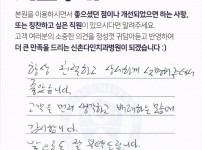 본원을 이용하시면서 좋으셨던 점이나 개선되었으면 하는 사항,
또는 칭찬하고 싶은 직원이 있으시다면 알려주세요.
고객 여러분의 소중한 의견을 정성껏 귀담아듣고 반영하여
더 큰 만족을 드리는 신촌다인치과병원이 되겠습니다 :)
항상 친절하고 상세하게 설명해주셔서
좋았습니다.
고객을 먼저 생각하고 배려하는 마음에
감사합니다.
앞으로도 잘 부탁드립니다.